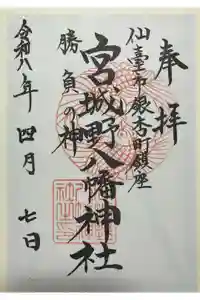 奉拝
仙臺市銀杏町鎮座
宮城野八幡神社
勝負の神
令和八年 四月 七日